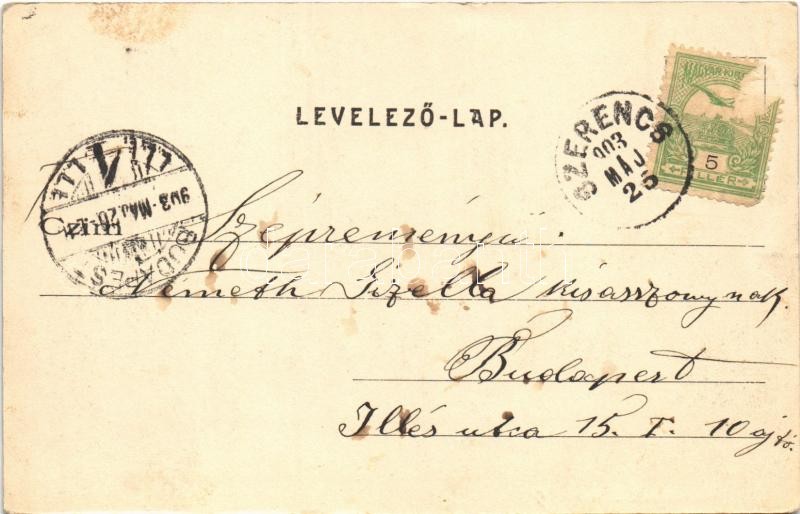 LEVELEZŐ-LAP.
MAGYAR KIR
5
FILLÉR
SZERENCS
903
MÁJ
25
903 MÁJ. 26
BUDAPEST
Czím
Szépreményű
Németh Gizella kisasszonynak.
Budapest
Illés utca 15. I. 10 ajtó.